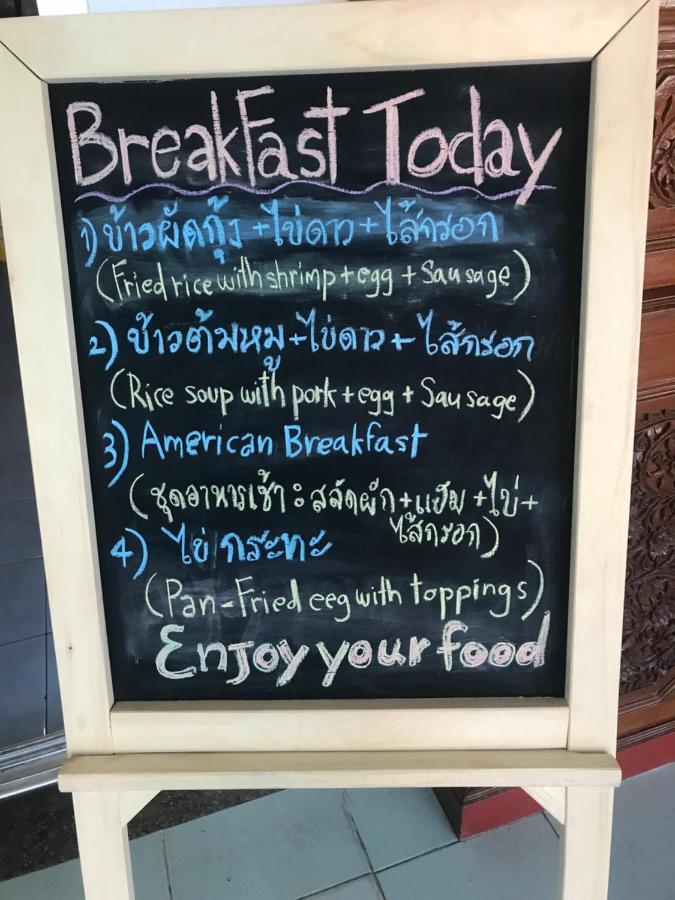 BreakFast Today
1) ข้าวผัดกุ้ง +ไข่ดาว + ไส้กรอก
(Fried rice with shrimp + egg + Sausage)
2) ข้าวต้มหมู + ไข่ดาว + ไส้กรอก
(Rice soup with pork + egg + Sausage)
3) American Breakfast
(ชุดอาหารเช้า : สลัดผัก + แฮม + ไข่ +
ไส้กรอก)
4) ไข่ กระทะ
(Pan-Fried eeg with toppings)
Enjoy your food